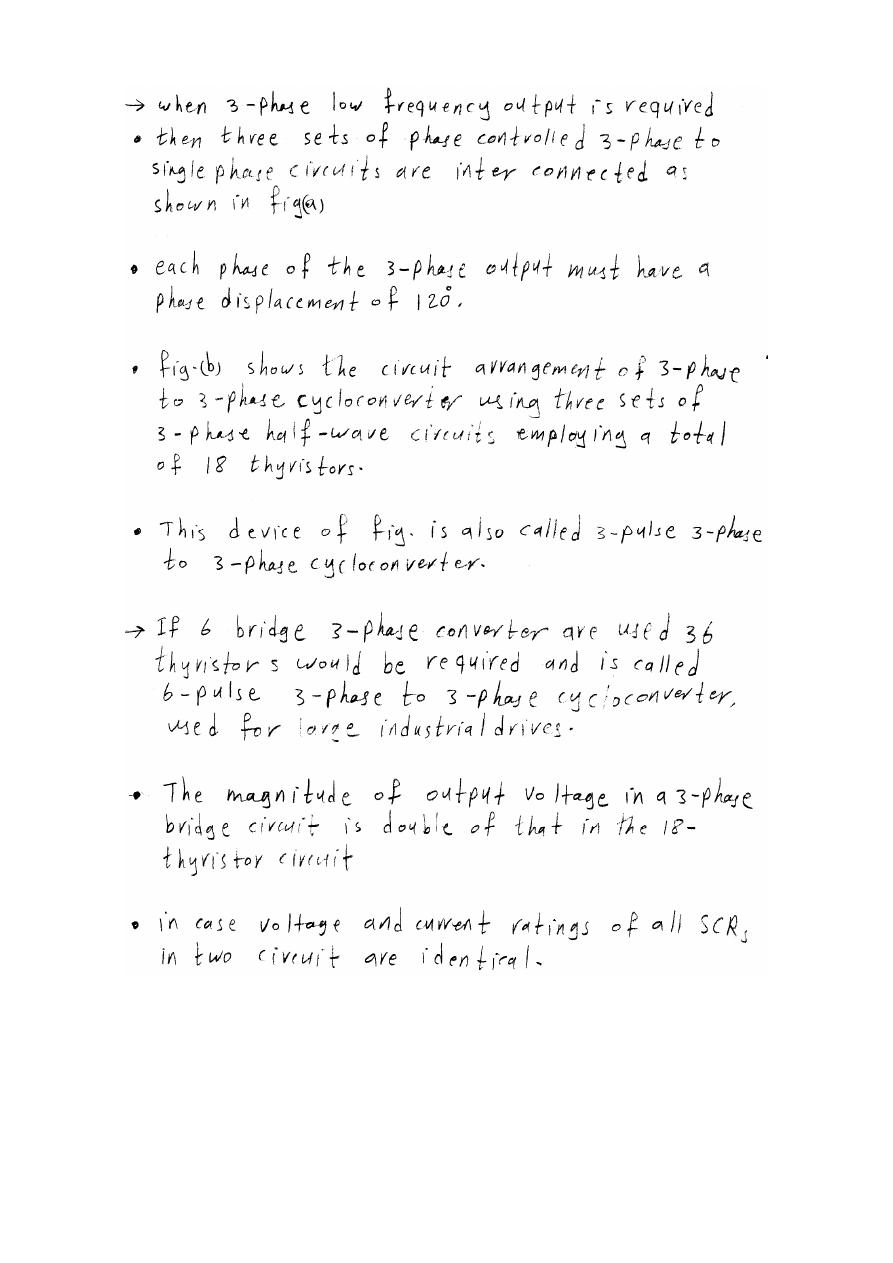 → when 3-phase low frequency output is required
• then three sets of phase controlled 3-phase to
single phase circuits are inter connected as
shown in fig(a)
• each phase of the 3-phase output must have a
phase displacement of 120°.
• fig.(b) shows the circuit arrangement of 3-phase
to 3-phase cycloconverter using three sets of
3-phase half-wave circuits employing a total
of 18 thyristors.
• This device of fig. is also called 3-pulse 3-phase
to 3-phase cycloconverter.
→ If 6 bridge 3-phase converter are used 36
thyristors would be required and is called
6-pulse 3-phase to 3-phase cycloconverter,
used for large industrial drives.
• The magnitude of output voltage in a 3-phase
bridge circuit is double of that in the 18-
thyristor circuit
• in case voltage and current ratings of all SCRs
in two circuit are identical.